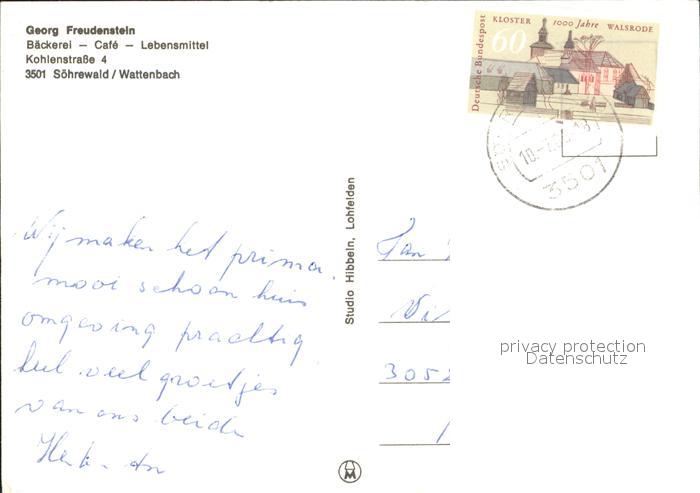 Georg Freudenstein
Bäckerei – Café – Lebensmittel
Kohlenstraße 4
3501 Söhrewald / Wattenbach
Deutsche Bundespost
KLOSTER 1000 Jahre WALSRODE
60
10.
3501
Studio Hibbeln, Lohfelden
Wij maken het prima.
mooi schoon huis
omgeving prachtig
heel veel groetjes
van ons beide
Jan
305
privacy protection
Datenschutz